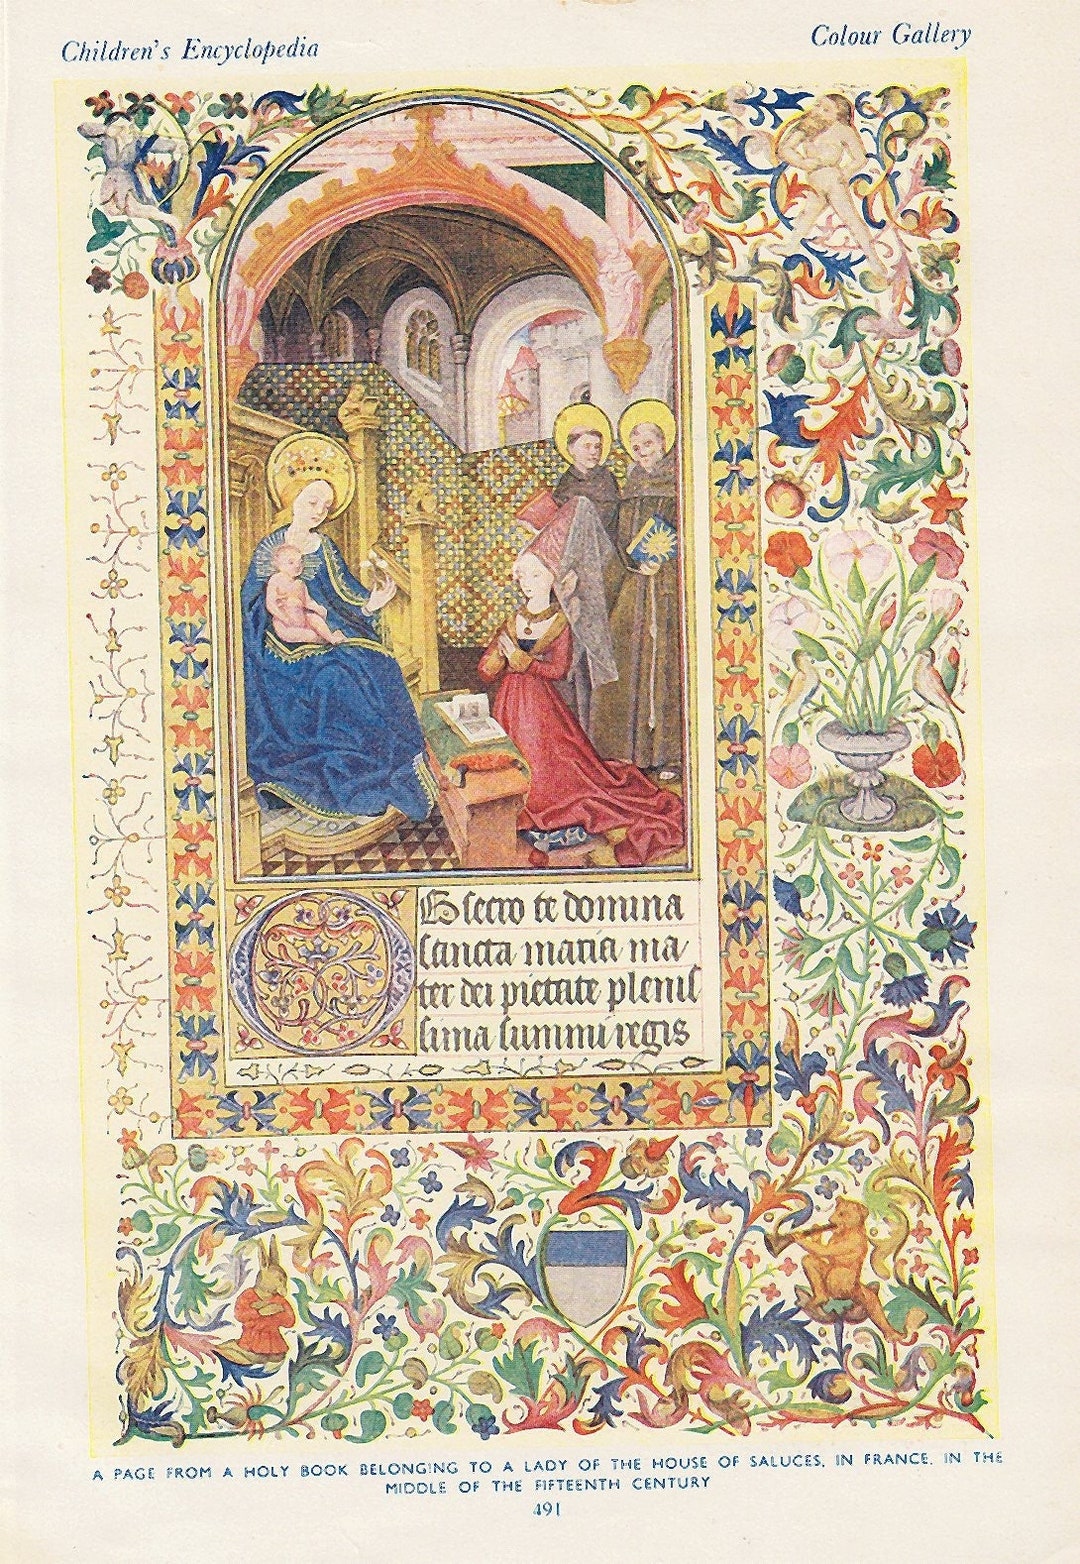 Children's Encyclopedia
Colour Gallery
O
Bsecro te domina
sancta maria ma
ter dei pietate plenis
sima summi regis
A PAGE FROM A HOLY BOOK BELONGING TO A LADY OF THE HOUSE OF SALUCES, IN FRANCE, IN THE
MIDDLE OF THE FIFTEENTH CENTURY
491